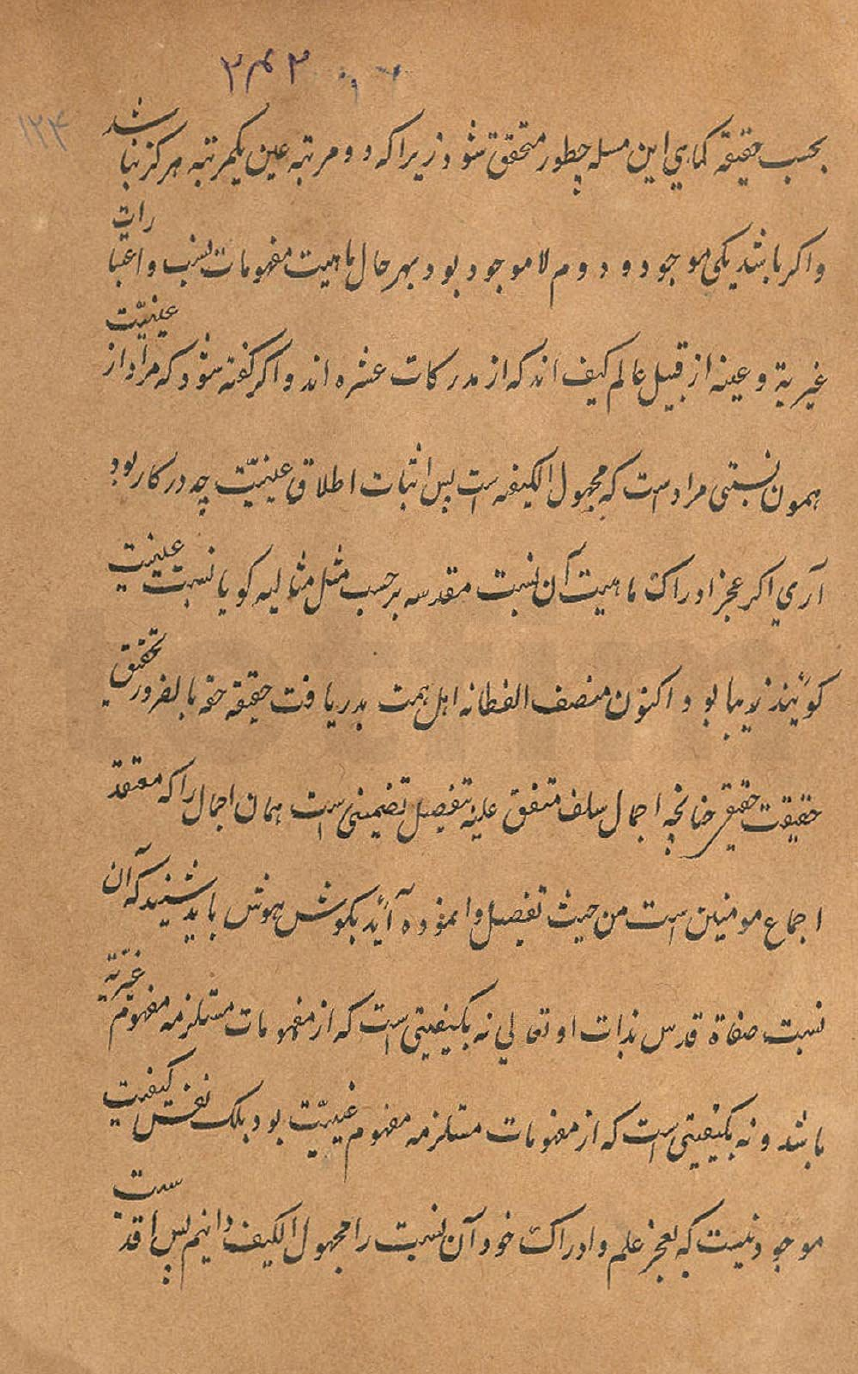 ۳۴۲
۱۲۴
بحسب حقیقه کماهی این مسله چطور متحقق شود زیرا که دو مرتبه عین یکمرتبه هرکز نباشد
واکر باشد یکی موجود و دوم لا موجود بود بهر حال ماهیت مفهومات نسب و اعتبارات
غیریة و عینه از قبیل عالم کیف اند که از مدرکات عشره اند واکر کفته شود که مراد از عینیّت
همون نسبتی مراد است که مجهول الکیفه است پس اثبات اطلاق عینیّت چه درکار بود
آری اکر عجز ادراک ماهیت آن نسبت مقدسه بر حسب مثل مثالیه کویا نسبت عینیت
کویند زیبا بود اکنون منصف الفطانه اهل همت بدریافت حقیقة حقه بالضرور تحقیق
حقیقت حقیقی چنانچه اجمال سلف متفق علیه تفصیل تضمینی است همان اجمال را که معتقد
اجماع مومنین است من حیث تفصیل وا نموده آید بکوش هوش باید شنید که آن
نسبت صفاة قدس بذات او تعالی نه بکیفیتی است که از مفهومات مستلزمه مفهوم غیریّة
باشد و نه بکیفیتی است که از مفهومات مستلزمه مفهوم عینیّت بود بلک نفس کیفیت
موجود نیست که بعجز علم و ادراک خود آن نسبت را مجهول الکیف دانیم پس